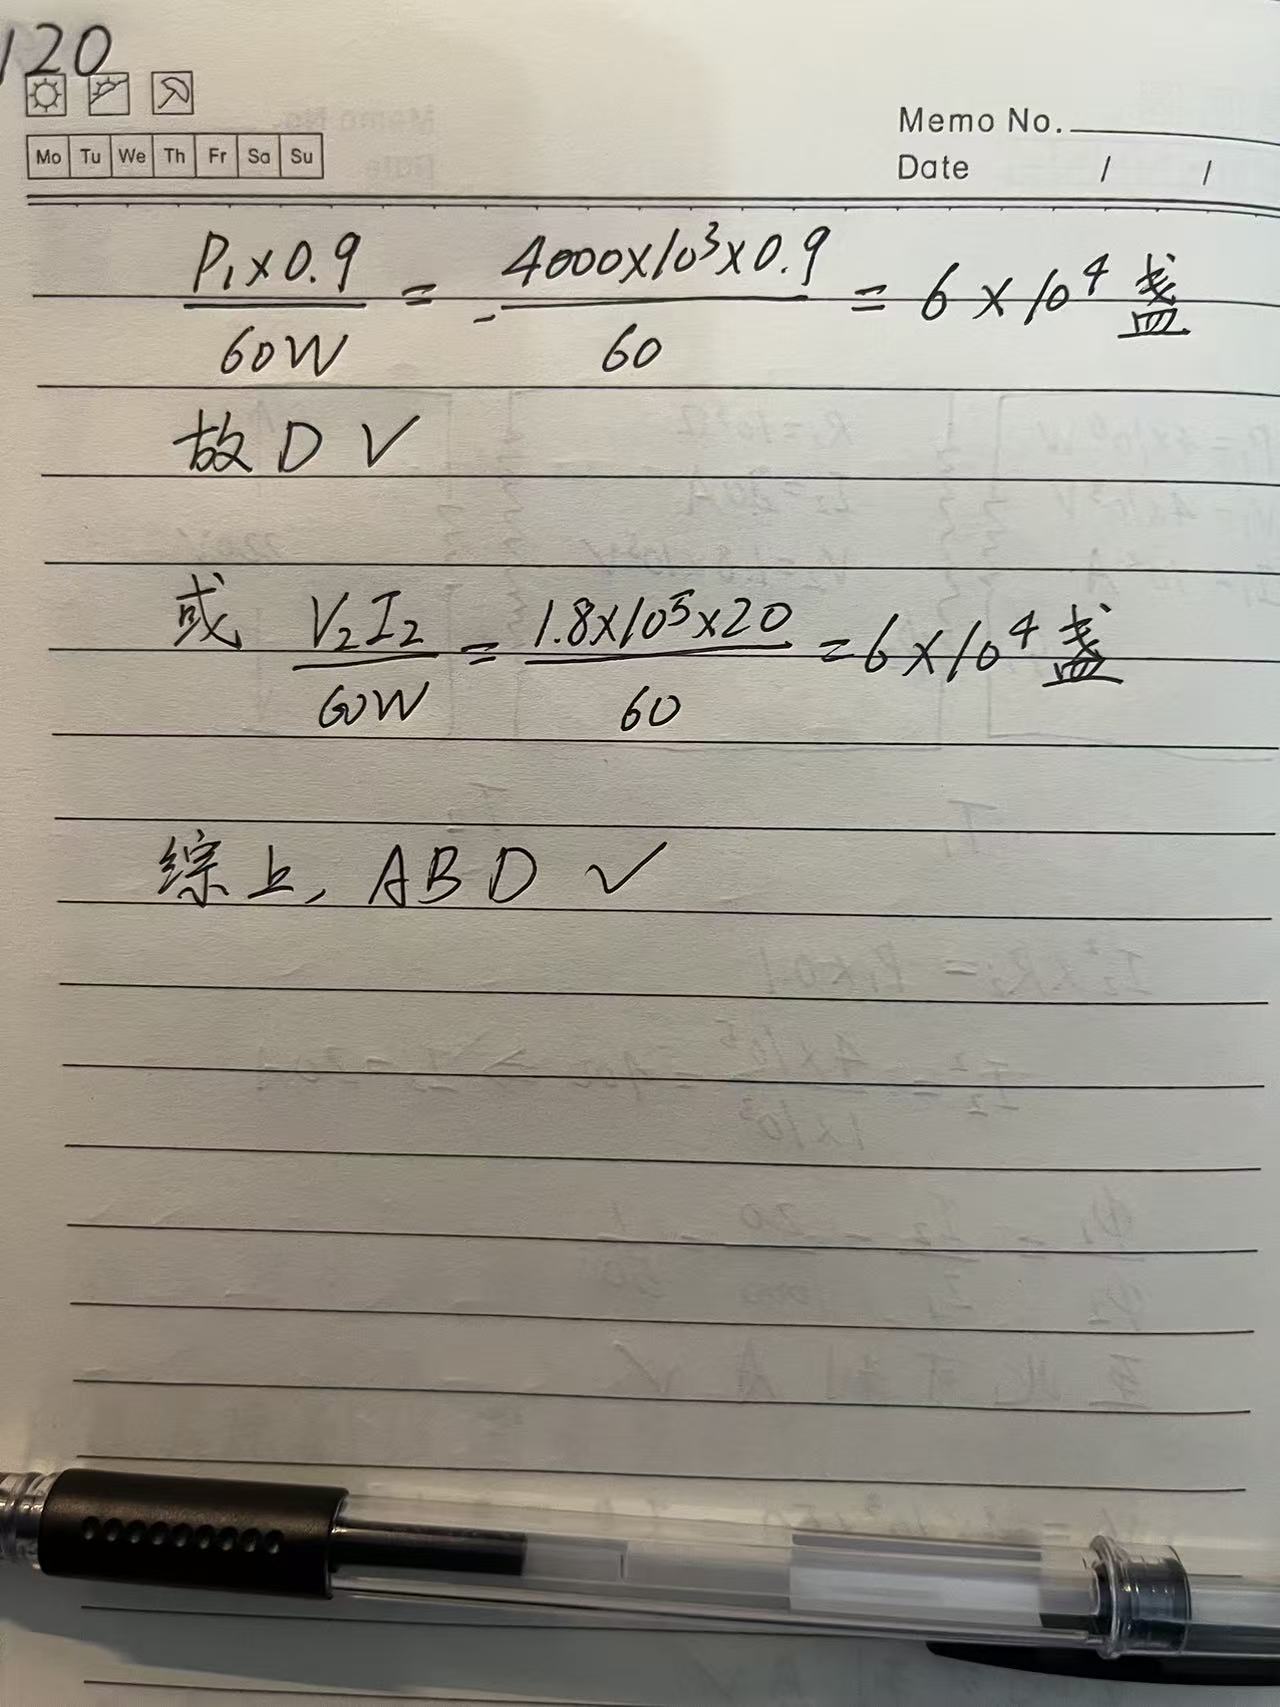 120
Mo Tu We Th Fr Sa Su
Memo No.
Date / /
P₁×0.9 / 60W = 4000×10³×0.9 / 60 = 6×10⁴ 盏
故 D √
或 V₂I₂ / 60W = 1.8×10⁵×20 / 60 = 6×10⁴ 盏
综上, ABD √